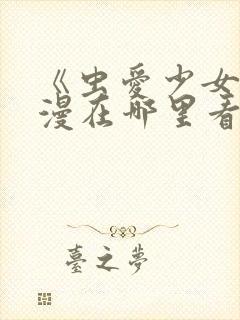 《虫爱少女
漫在哪里看
臺之夢